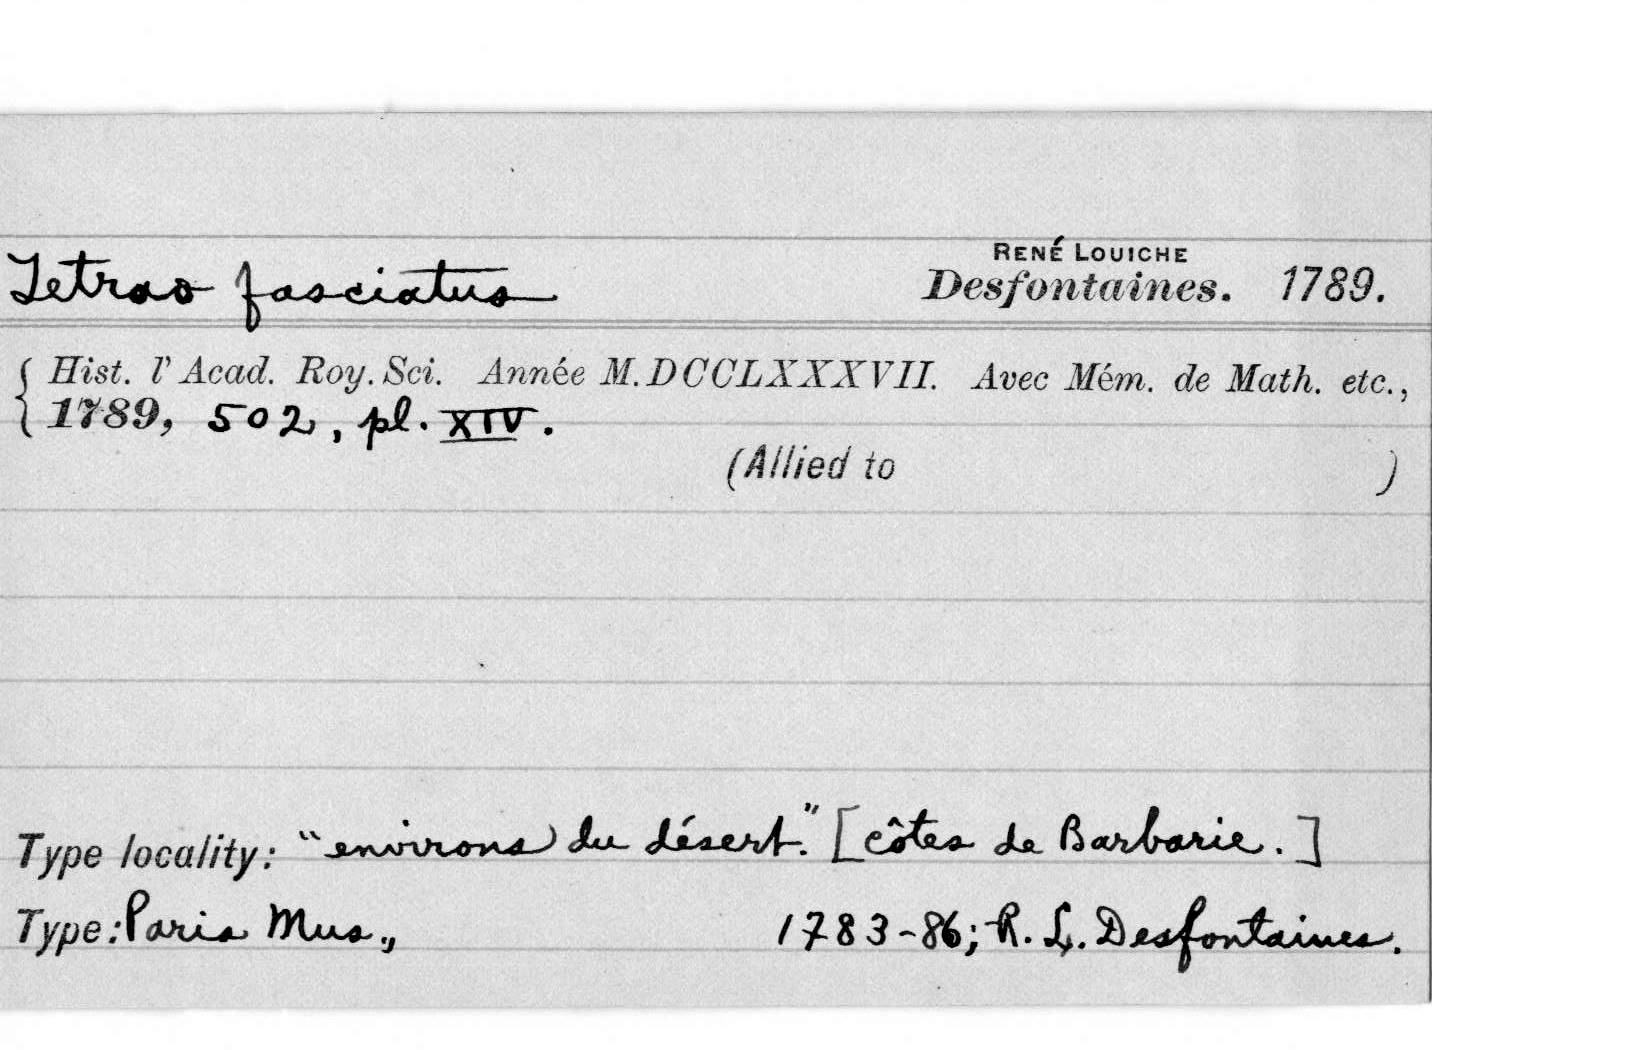 RENÉ LOUICHE
Tetrao fasciatus Desfontaines. 1789.
{ Hist. l' Acad. Roy. Sci. Année M.DCCLXXXVII. Avec Mém. de Math. etc.,
1789, 502, pl. XIV.
(Allied to )
Type locality: "environs du désert." [côtes de Barbarie.]
Type: Paris Mus., 1783-86; R. L. Desfontaines.